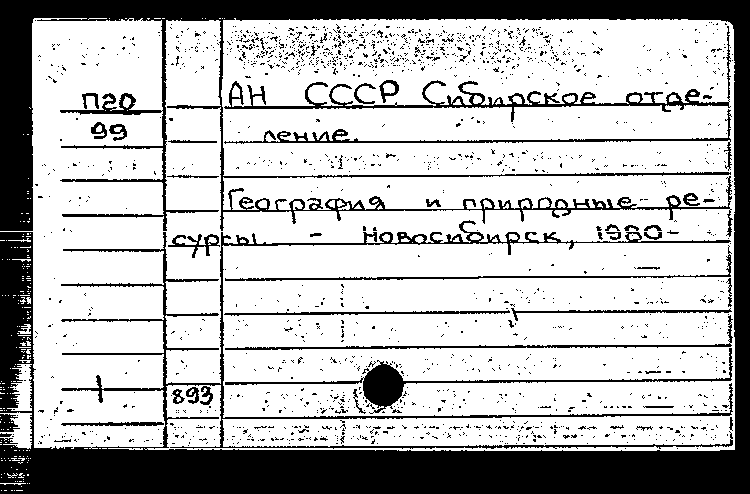 П20 АН СССР Сибирское отде-
99 ление.
География и природные ре-
сурсы. - Новосибирск, 1980-
1 893